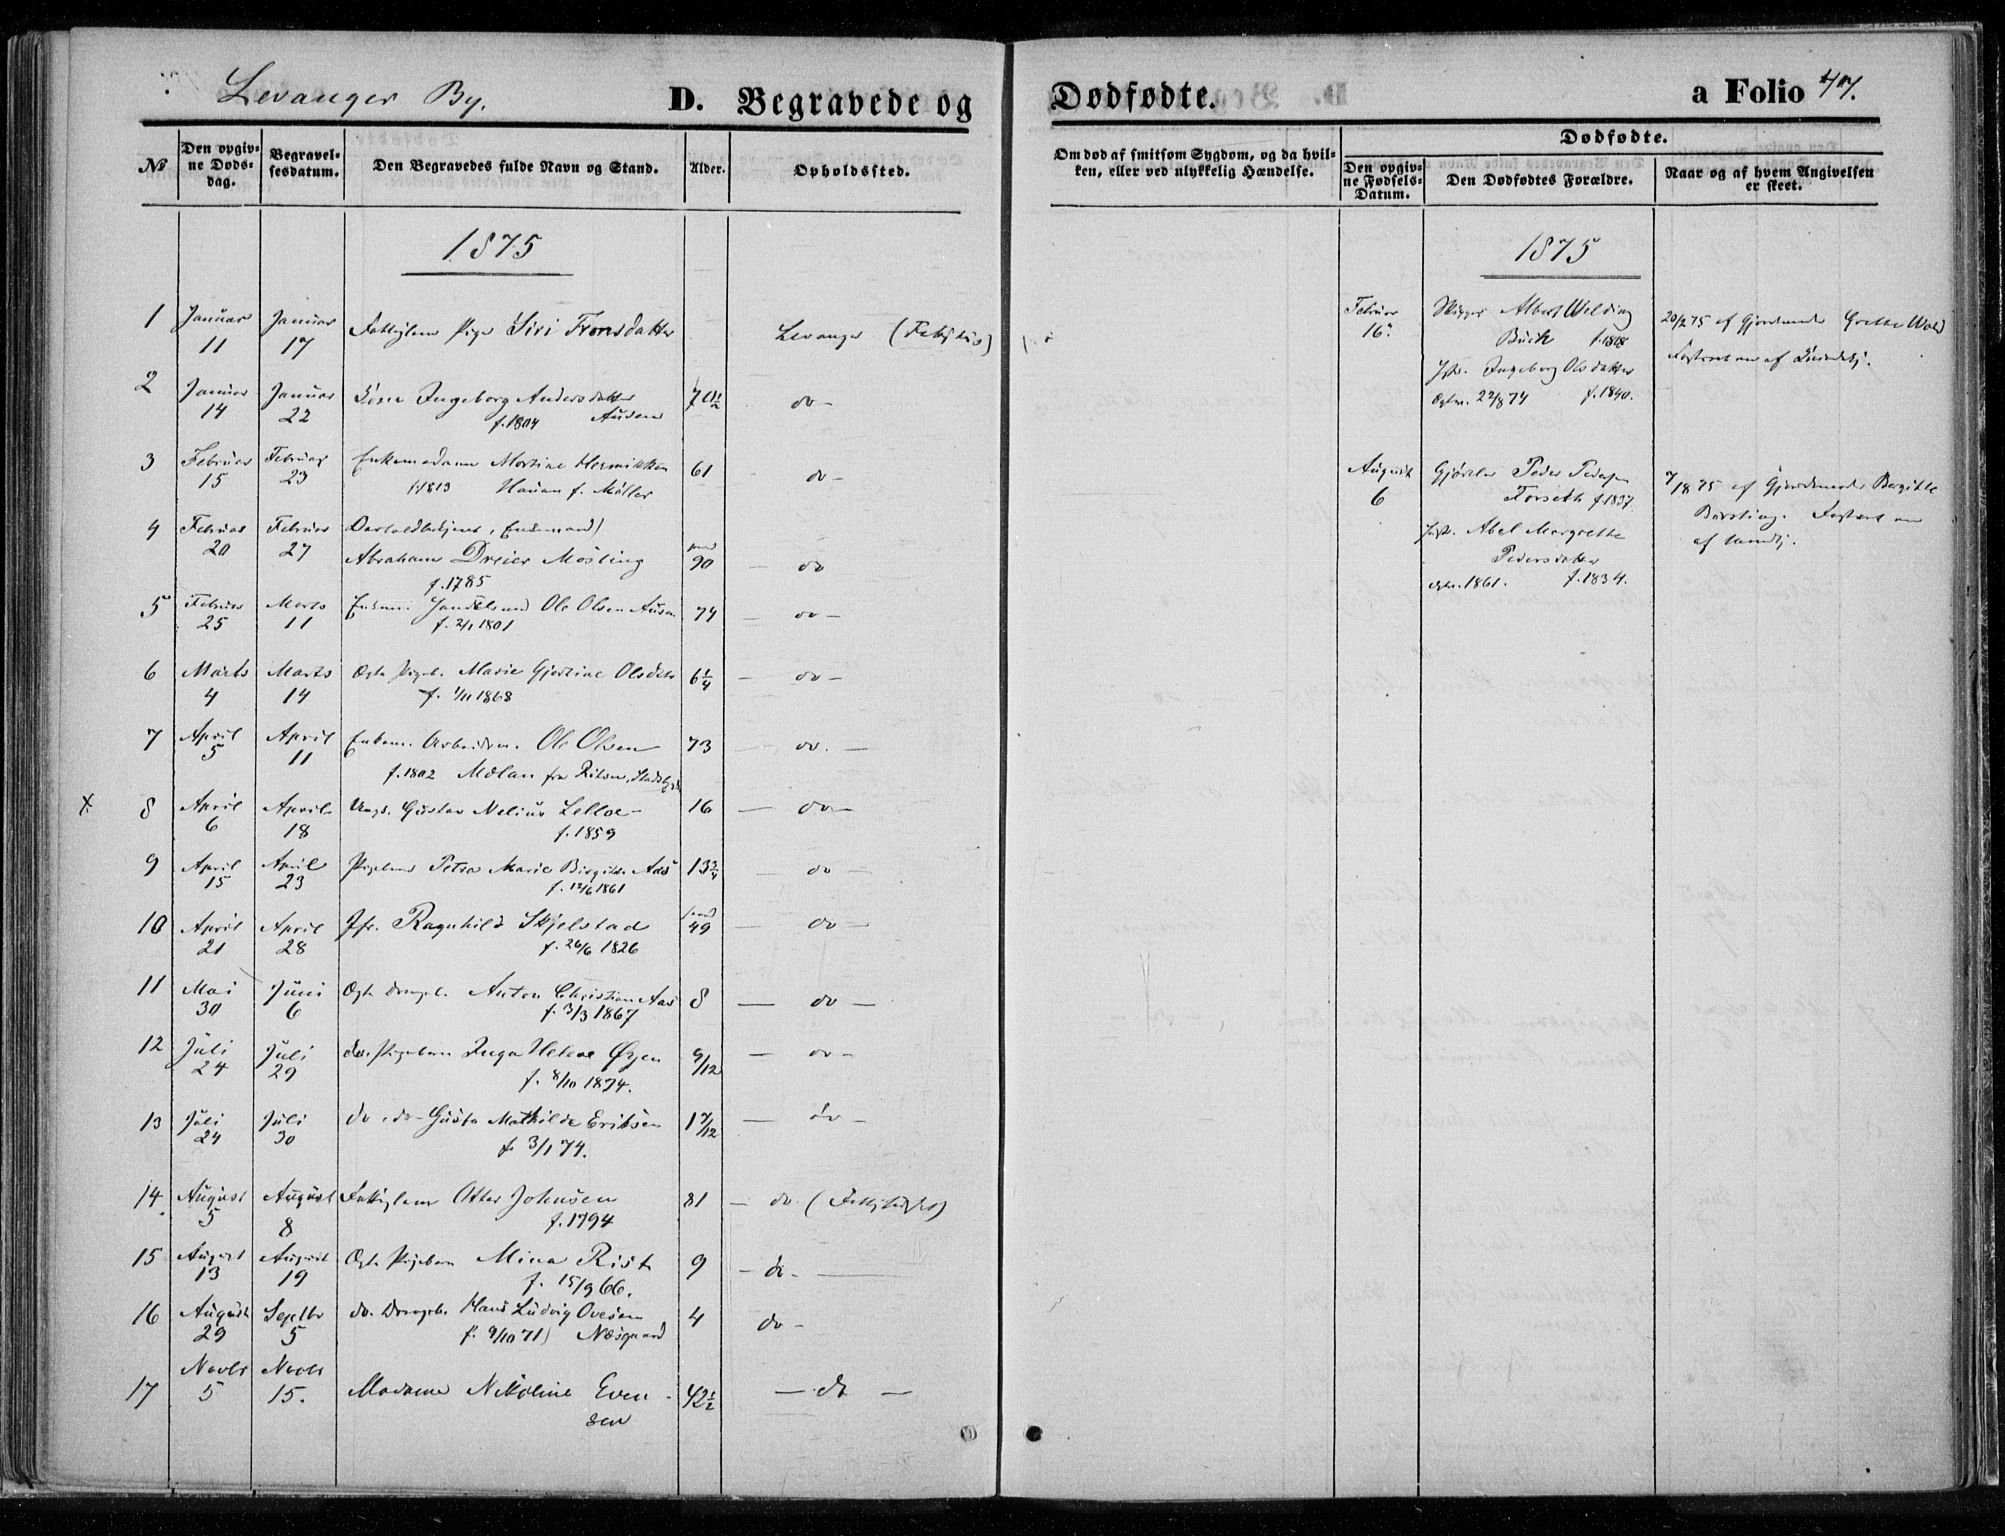 Levanger By.
D. Begravede og Dødfødte.
a Folio 47.
No
Den opgivne Døds-dag.
Begravel-sesdatum.
Den Begravedes fulde Navn og Stand.
Alder.
Opholdssted.
Om død af smitsom Sygdom, og da hvilken, eller ved ulykkelig Hændelse.
Dødfødte.
Den opgivne Fødsels-Datum.
Den Dødfødtes Forældre.
Naar og af hvem Angivelsen er skeet.
1875
1 Januar 11 Januar 17 Pige Siri Tronsdatter Levanger
2 Januar 14 Januar 22 Ingeborg Andersdatter 70½ do -
f. 1804 Ausen
3 Februar 15 Februar 23 Enkemadam Martine 61 do -
f. 1813 Hauan f. Møller
4 Februar 20 Februar 27 Enkemand)
Abraham Dreier Møsling 90 - do
f. 1785
5 Februar 25 Marts 11 Ole Olsen Ausen 74 - do -
f. 2/1 1801
6 Marts 4 Marts 14 Ægte Pigeb. Marie Gjertine Olsdtr 6¼ - do -
f. 1868
7 April 5 April 11 Enkem. Arbeidsm. Ole Olsen 73 - do. -
f. 1802 Mølan fra Stadsbygd
x 8 April 6 April 18 Ungk. Gustav Nelius 16 - do -
f. 1859
9 April 15 April 23 Pigebarn Petra Marie Birgitte Aas 13¾ - do -
f. 12/6 1861
10 April 21 April 28 Jfr. Ragnhild Skjelstad 49 - do -
f. 26/6 1826
11 Mai 30 Juni 6 Ægte Drengeb. Anton Christian Aas 8 - do -
f. 3/3 1867
12 Juli 24 Juli 29 do. Pigebarn Inga Helene Øyen 9/12 - do -
f. 8/10 1874.
13 Juli 24 Juli 30 do. do - Gusta Mathilde Eriksen 1 7/12 - do -
f 3/1 74.
14. August 5 August 8 Fattiglem Otter Johnsen 81 - do.
f. 1794
15 August 13 August 19 Ægte Pigebarn Mina Rist 9 - do. -
f. 15/9 66.
16 August 29 Septbr 5 do. Drengeb. Hans Ludvig Ovesen 4 do -
f. 9/10 71) Næsgaard
17 Novbr 5 Novbr 15. Madame Nikoline Even- 42½ - do -
sen
1875
Februar 16. Skipper Albert Welding
Buch f. 1818
Ingeborg Olsdatter
f. 1840.
20/2 75 af Gjordemoder Grethe Wold
August 6 Gjørtler Peder Pedersen
Forseth f. 1837.
Abel Margrethe
Pedersdatter
1861. f. 1834.
7/8 75 af Gjordemoder Bergitte